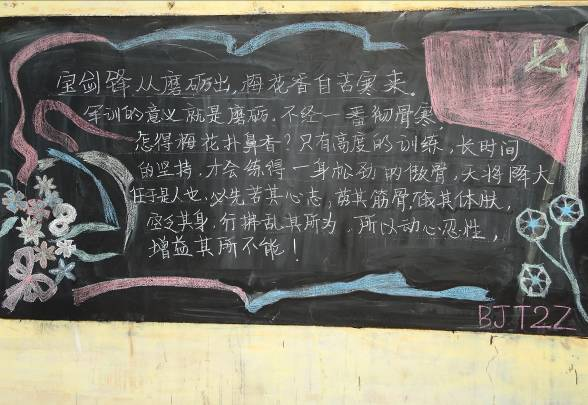 宝剑锋从磨砺出，梅花香自苦寒来。
军训的意义就是磨砺．不经一番彻骨寒，
怎得梅花扑鼻香？只有高度的训练，长时间
的坚持，才会练得一身松劲的傲骨，天将降大
任于是人也，必先苦其心志，劳其筋骨，饿其体肤，
空乏其身，行拂乱其所为，所以动心忍性，
增益其所不能！
BJT2Z